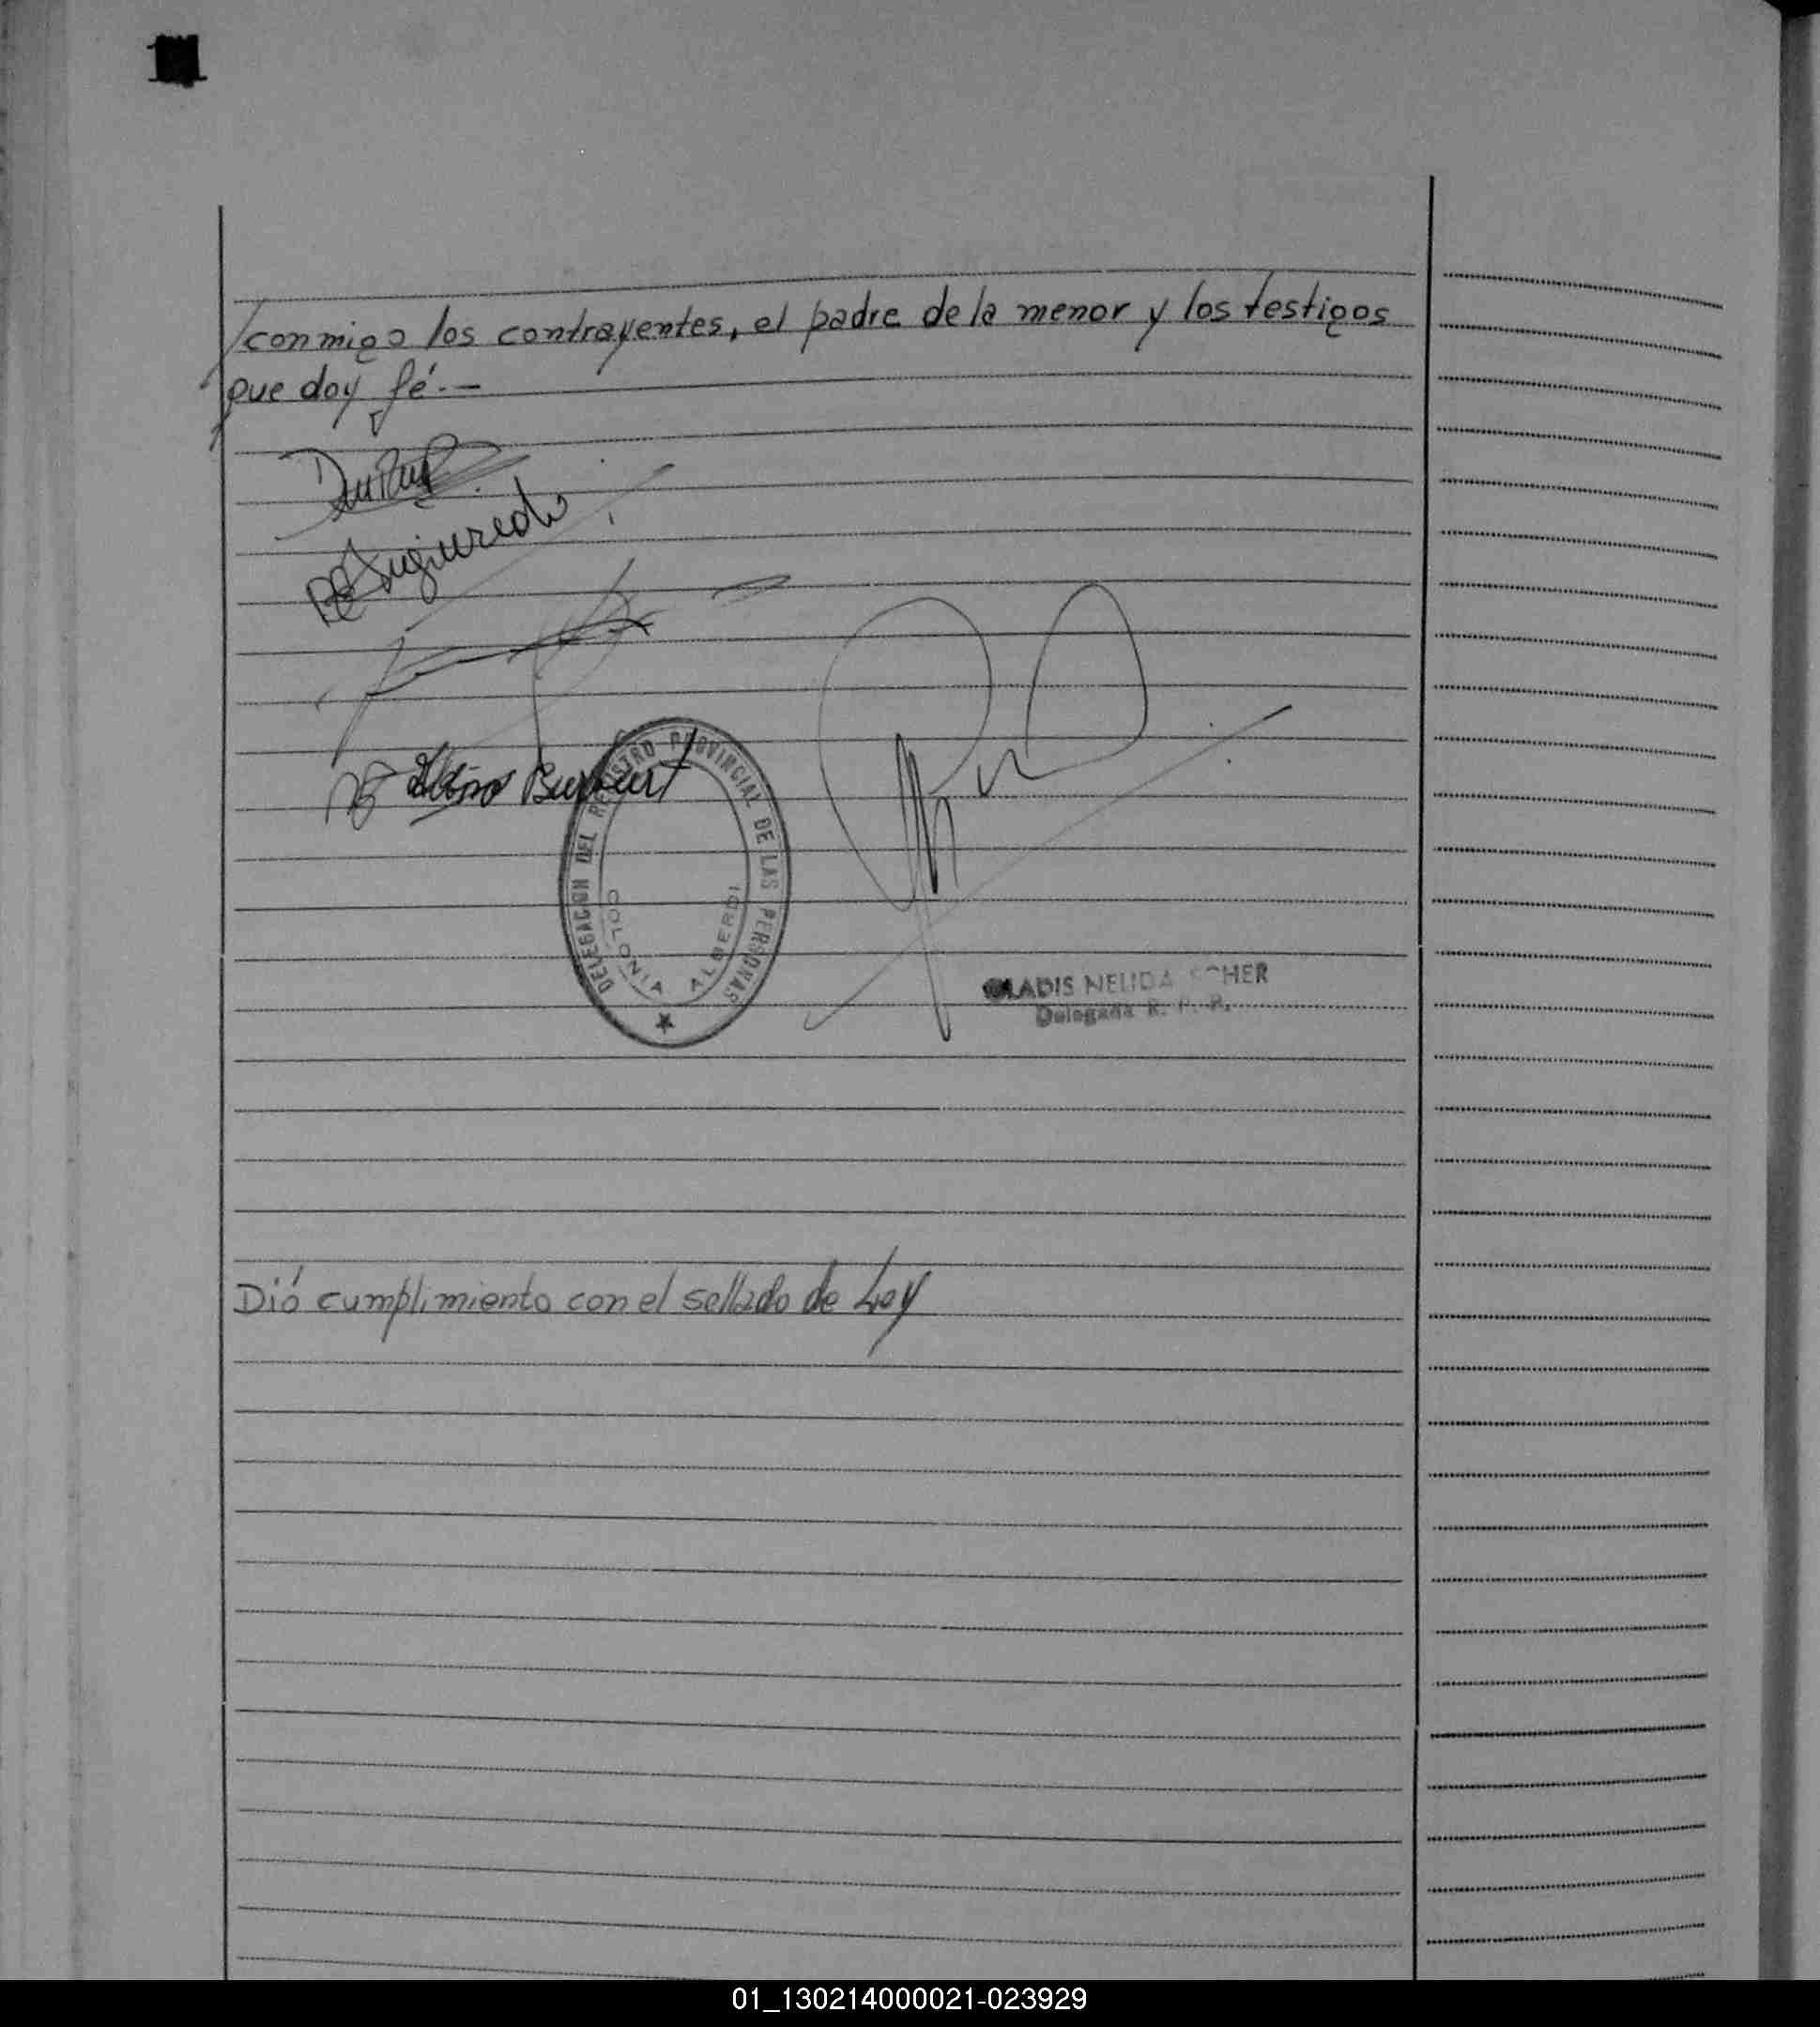 /conmigo los contrayentes, el padre de la menor y los testigos
que doy fé.—
DELEGACION DEL REGISTRO PROVINCIAL DE LAS PERSONAS
COLONIA ALBERDI
GLADIS NELIDA
Delegada R. P. P.
Dió cumplimiento con el sellado de Ley
01_130214000021-023929